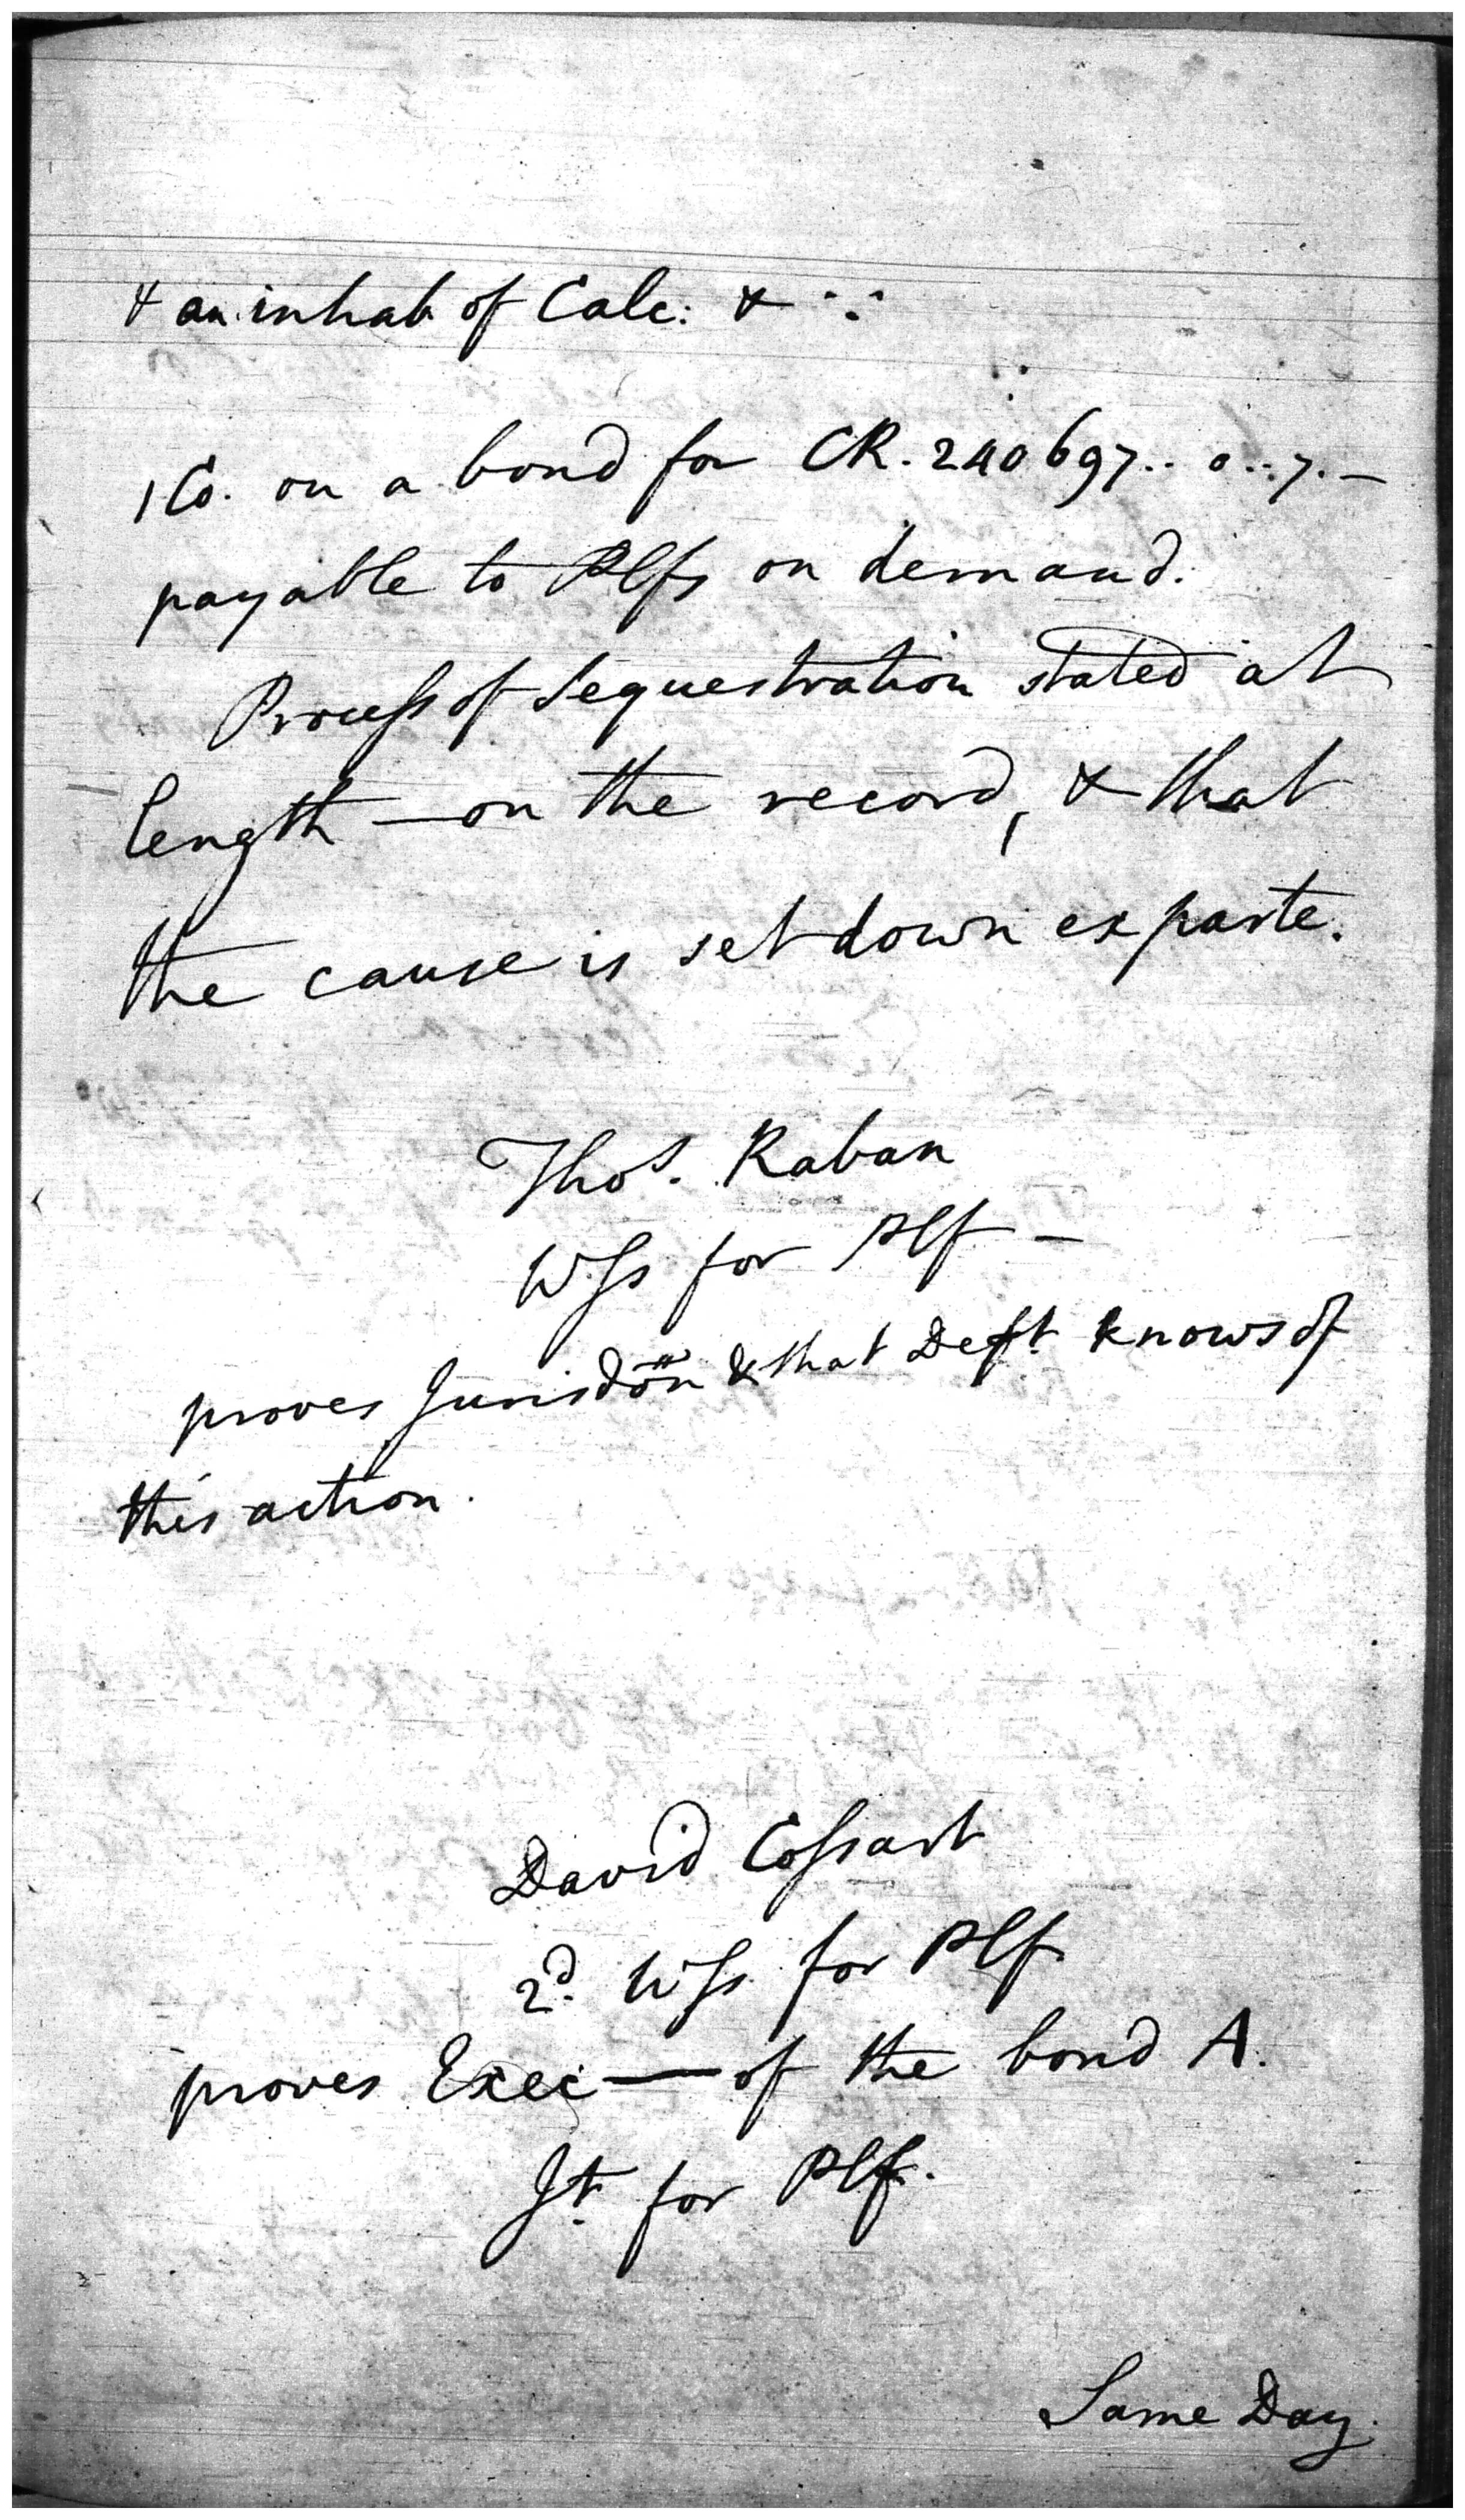 & an inhab of Calc: &
1 Co. on a bond for CR. 240697.. 0..7.—
payable to Plfs on demand.
Process of Sequestration stated at
length — on the record, & that
the cause is set down ex parte.
Thos. Raban
Wss for Plf —
proves Jurisdon & that Deft. knows of
this action.
David Cossart
2d. Wss for Plf
proves Exec — of the bond A.
Jt. for Plf.
Same Day.